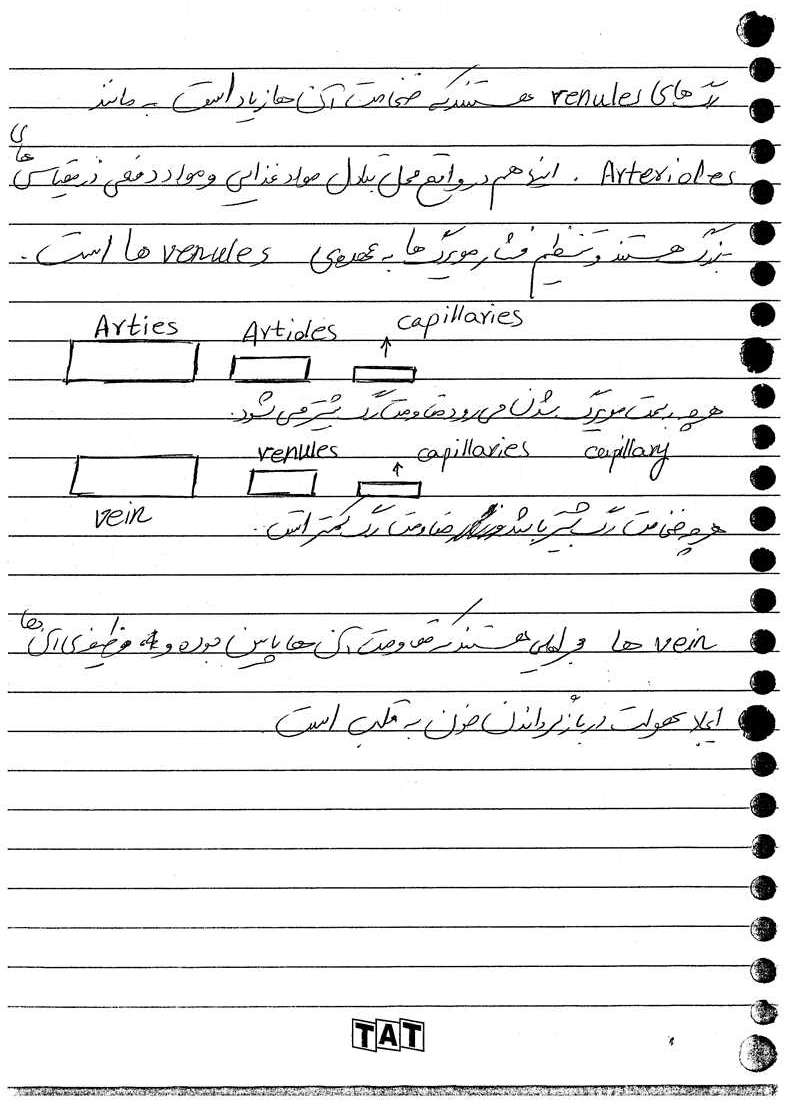 رگ های venules هستند که ضخامت آن ها زیاد است به مانند
Arterioles . اینها هم در واقع محل تبادل مواد غذایی و مواد دفعی در مقیاس های
بزرگ هستند و تنظیم فشار مویرگ ها به عهده‌ی venules ها است.
Arties Artioles capillaries
هرچه به سمت مویرگ شدن می رود مقاومت رگ بیشتر می شود.
venules capillaries capillary
vein
هرچه ضخامت رگ بیشتر باشد مقاومت رگ کمتر است.
vein ها هستند که مقاومت آن ها پایین بوده و وظیفه‌ی آن ها
ایجاد سهولت در بازگرداندن خون به قلب است
TAT